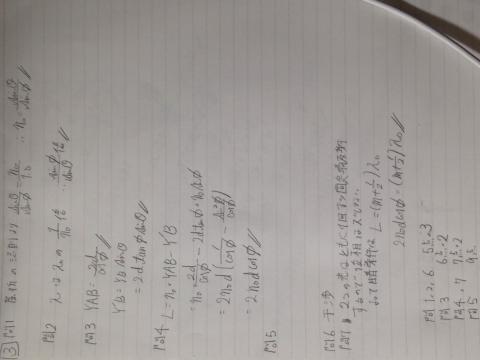 3 問1 屈折の法則より sinθ/sinφ = n₀/1.0 ∴ n₀ = sinθ/sinφ
問2 λはλ₀の 1/n₀ 倍 ∴ sinφ/sinθ 倍
問3 YAB = 2d/cosφ
Y'B = Yb sinθ
= 2d tanφ sinθ
問4 L = n₀・YAB - Y'B
= n₀・2d/cosφ - 2d tanφ・n₀ sinφ
= 2n₀d(1/cosφ - sin²φ/cosφ)
= 2n₀d cosφ
問5
問6 干渉
問7 2つの光はともに1回ずつ固定端反射
するので位相はズレない
よって 条件は L = (m+1/2)λ₀
2n₀d cosφ = (m+1/2)λ₀
問1,2,6 5点×3
問3 6点×2
問4,7 7点×2
問5 9点